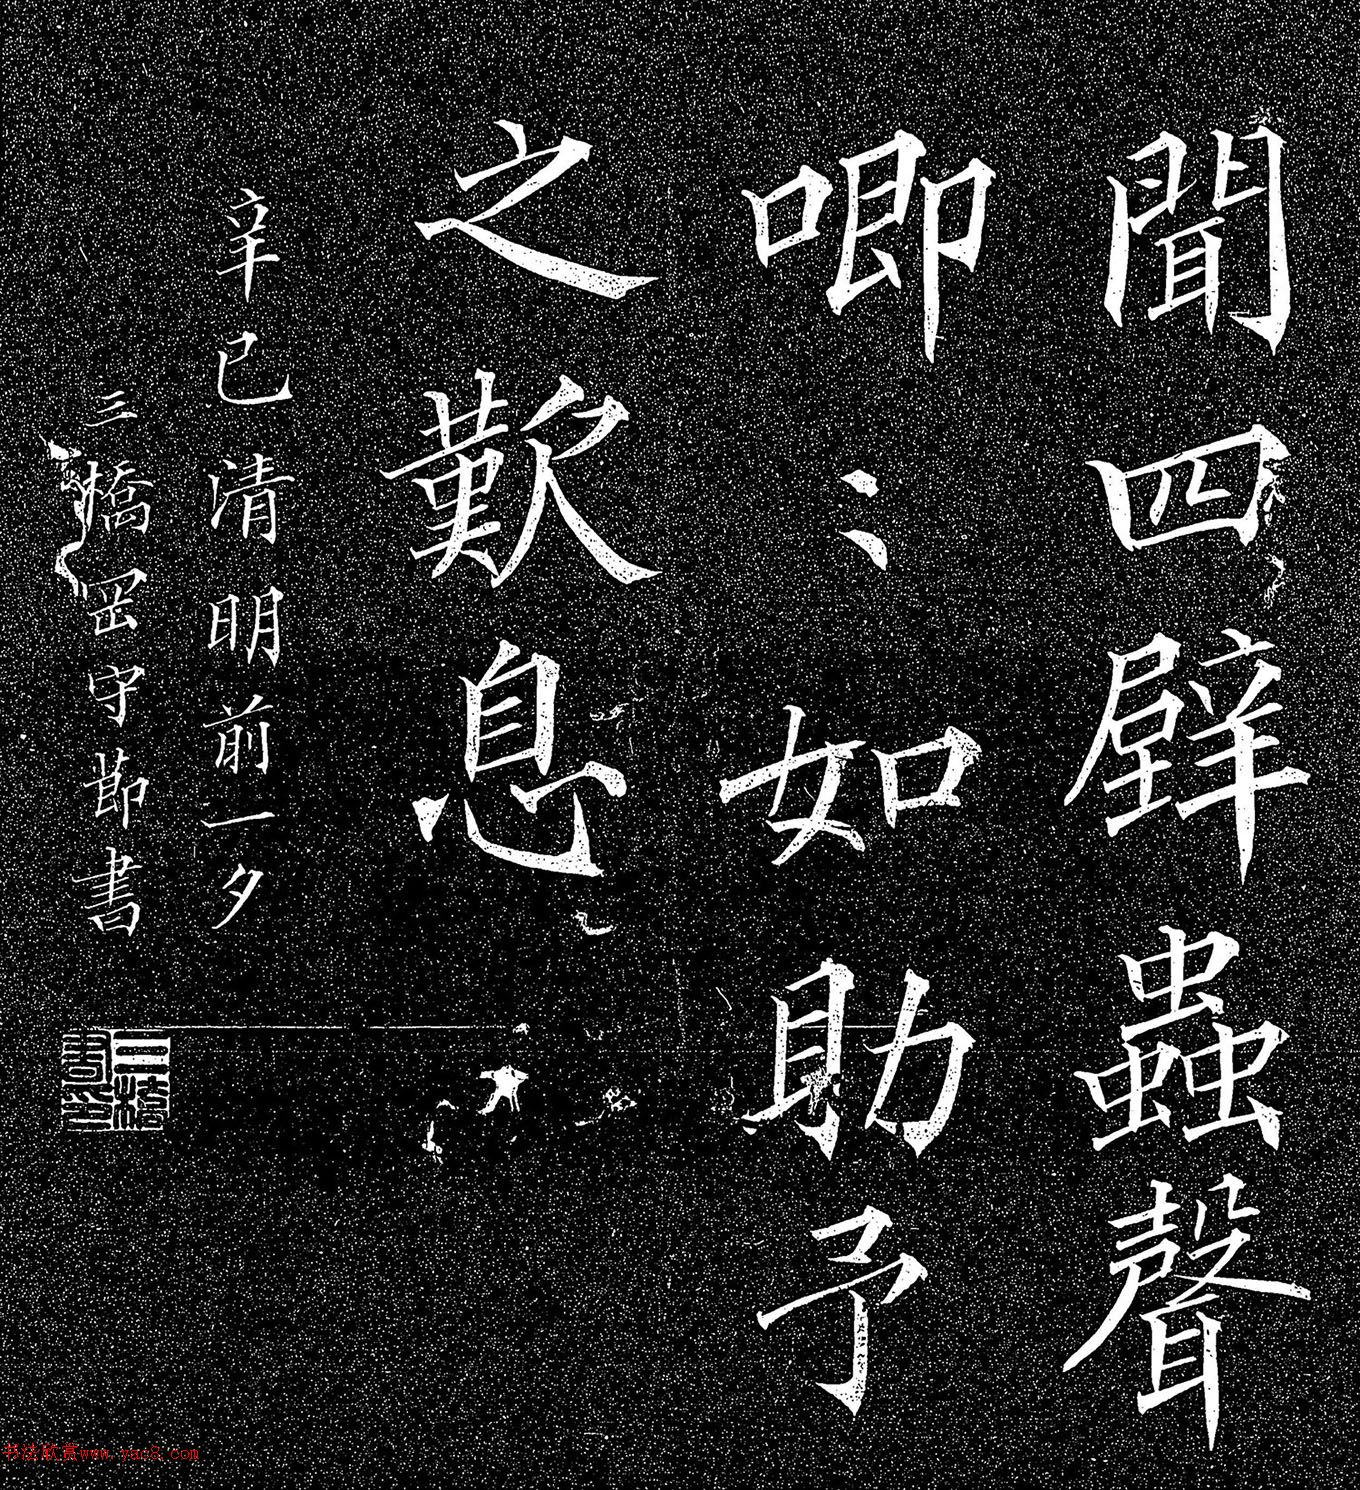 聞四壁蟲聲
唧〻如助予
之歎息
辛巳清明前一夕
三橋岡守節書
书法欣赏www.yac8.com